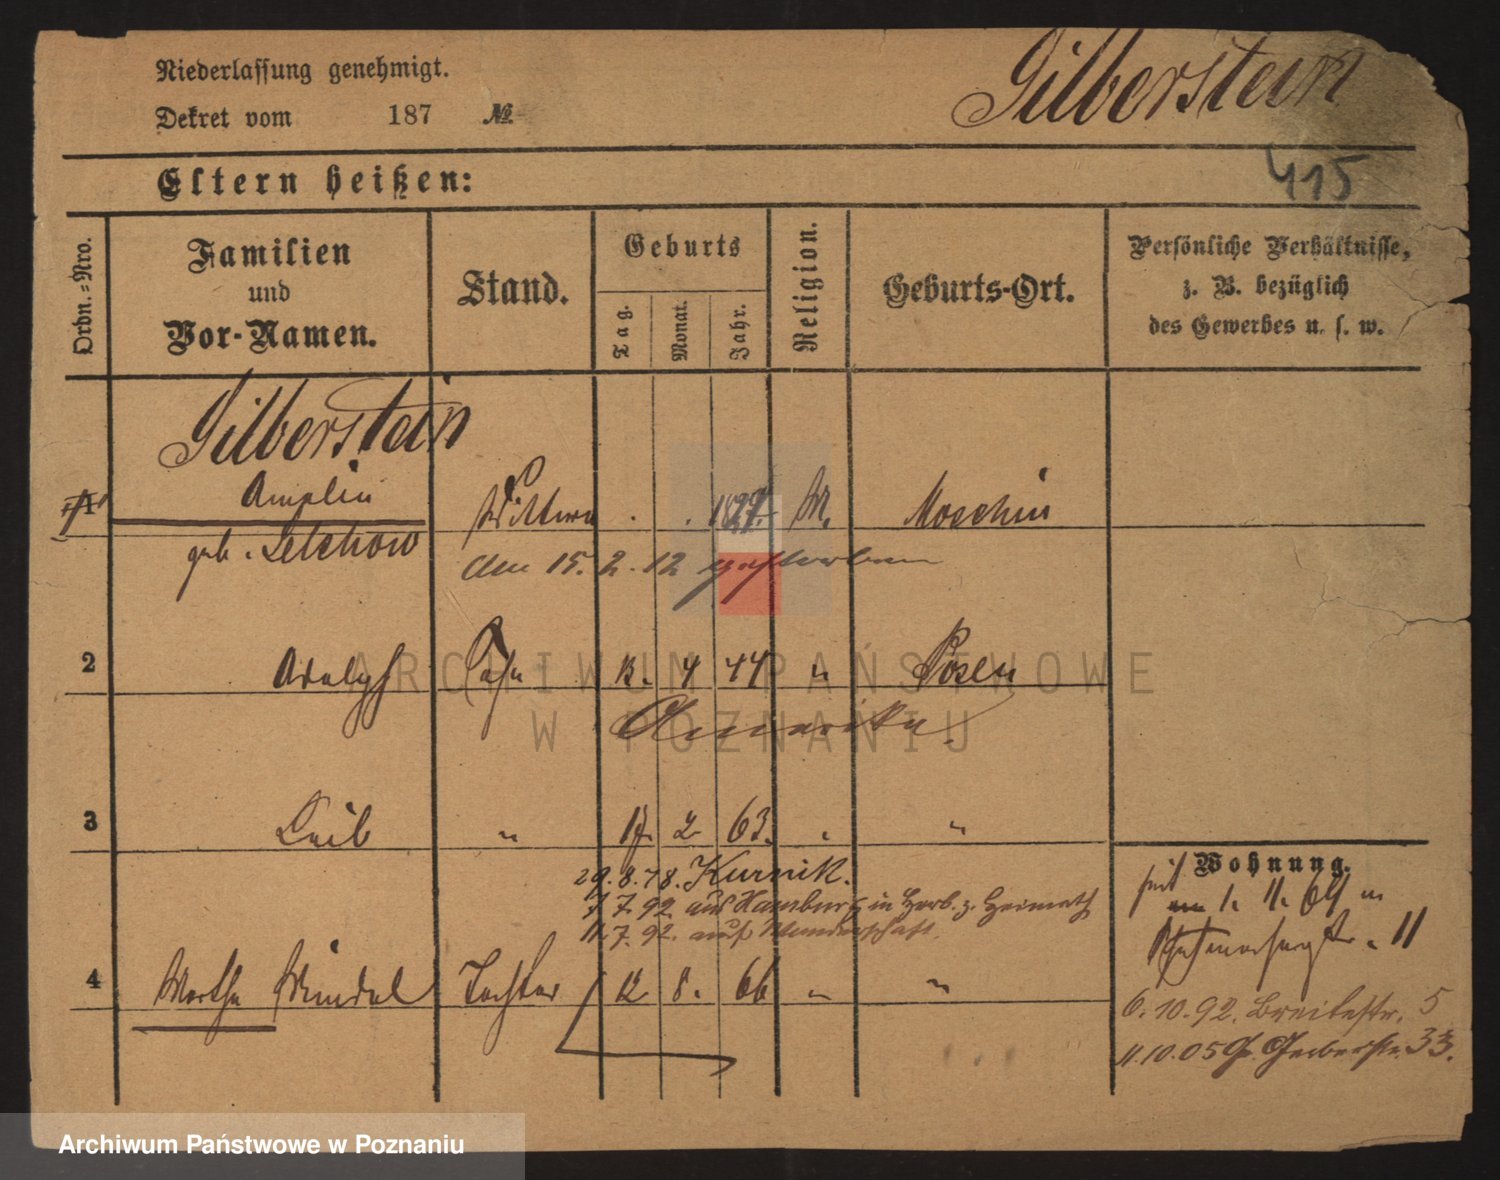 Niederlassung genehmigt.
Dekret vom 187 №
Silberstein
415
Eltern heißen:
Ordn.=Nro.
Familien
und
Vor-Namen.
Stand.
Geburts
Tag.
Monat.
Jahr.
Religion.
Geburts-Ort.
Persönliche Verhältnisse,
z. B. bezüglich
des Gewerbes u. s. w.
Silberstein
1 M. Moschin
geb. Selchow
den 15. 2. 12 gestorben
2 Adolph Sohn 13. 4 44 " Posen
Amerika.
3 Leib " 17. 2 63. " "
29. 8. 78. Kurnik.
7. 7. 92. aus Hamburg in Herb. z. Heimath
11. 7. 92. auf Wanderschaft.
4 Martha Mindel Tochter 12 8. 66 " "
Wohnung.
seit
1. 11. 64 11
6. 10. 92. Breitestr. 5
11. 10. 05 Gr. Gerberstr. 33.
ARCHIWUM PAŃSTWOWE
W POZNANIU
Archiwum Państwowe w Poznaniu